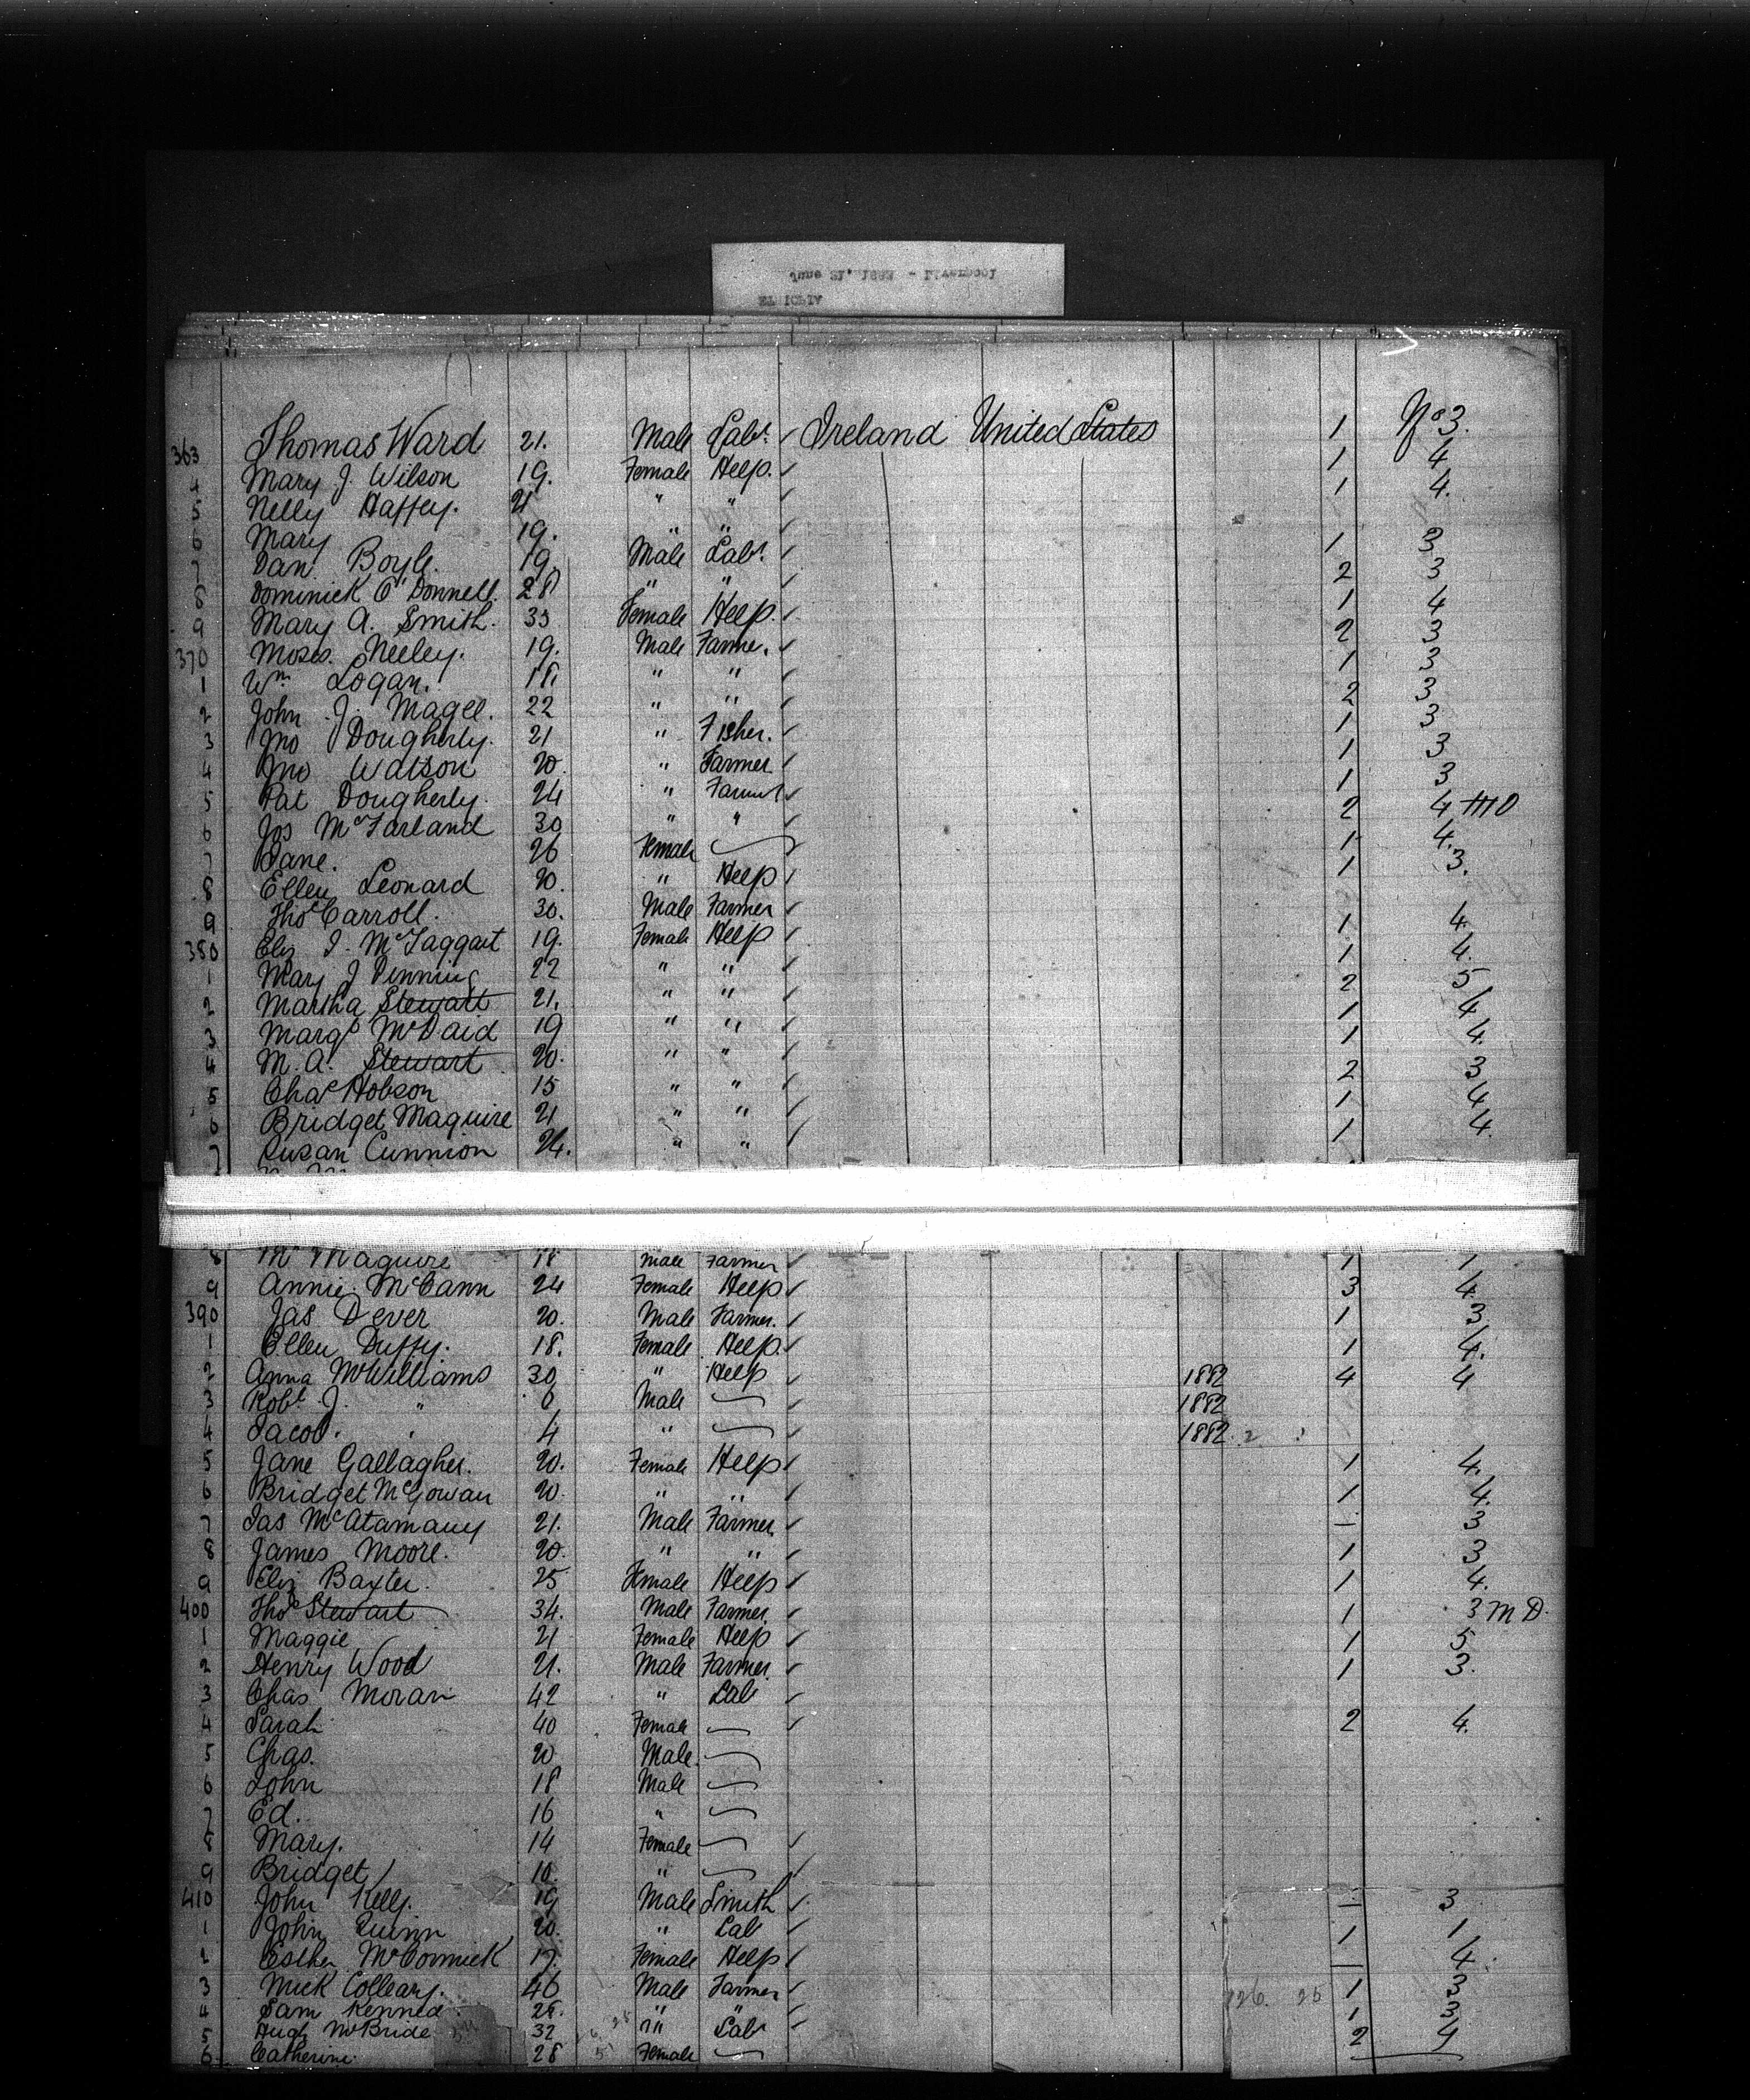 363 Thomas Ward 21. Male Labr. Ireland United States 1 No 3.
4 Mary J. Wilson 19. Female Help. 1 4
5 Nelly Haffey. 21 " " 1 4.
6 Mary 19. " "
7 Dan Boyle. 19. Male Labr. 1 3
8 Dominick O'Donnell. 28 " " 2 3
9 Mary A. Smith. 33 Female Help. 1 4
370 Moses Neeley. 19. Male Farmer. 2 3
1 Wm Logan. 18. " " 1 3
2 John J. Magee. 22 " " 2 3
3 Jno Dougherty. 21 " Fisher. 1 3
4 Jno Watson 20. " Farmer 1 3
5 Pat Dougherty. 24 " Farmer 1 3
6 Jos McFarland 30 " " 2 4
7 Jane. 26 Female 1 4.
8 Ellen Leonard 20. " Help 1 3.
9 Thos Carroll. 30. Male Farmer
380 Eliz J. McTaggart 19. Female Help 1 4.
1 Mary J 22 " " 1 4.
2 Martha Stewart 21. " " 2 5
3 Margt McDaid 19 " " 1 4
4 M. A. Stewart 20. " " 1 4.
5 Chas Hobson 15 " " 2 3
6 Bridget Maguire 21 " " 1 4
7 Susan Cunnion 24. " " 1 4.
8 Maguire 18 Male Farmer 1 1
9 Annie McCann 24 Female Help 3 4.
390 Jas Dever 20. Male Farmer. 1 3
1 Ellen Duffy. 18. Female Help 1 4.
2 Anna McWilliams 30 " Help 1882 4 4
3 Robt J. " 6 Male 1882
4 Jacob. " 4 " 1882
5 Jane Gallagher. 20. Female Help 1 4.
6 Bridget McGowan 20. " " 1 4.
7 Jas McAtamany 21. Male Farmer — 3
8 James Moore. 20. " " 1 3
9 Eliz Baxter. 25 Female Help 1 4.
400 Thos Stewart 34. Male Farmer. 1 3 M D.
1 Maggie 21 Female Help 1 5
2 Henry Wood 21. Male Farmer. 1 3.
3 Chas Moran 42 " Lab
4 Sarah 40 Female 2 4.
5 Chas. 20 Male
6 John 18 Male
7 Ed. 16 "
8 Mary. 14 Female
9 Bridget 10. "
410 John Kelly. 19 Male Smith — 3
1 John Quinn 20. " Lab 1 1
2 Esther McCormick 17. Female Help — 4
3 Mick Colleary. 46 Male Farmer 1 3
4 Sam Kenned 25. " " 1 3
5 Hugh McBride 32 " Lab 2 4
6 Catherine. 28 Female